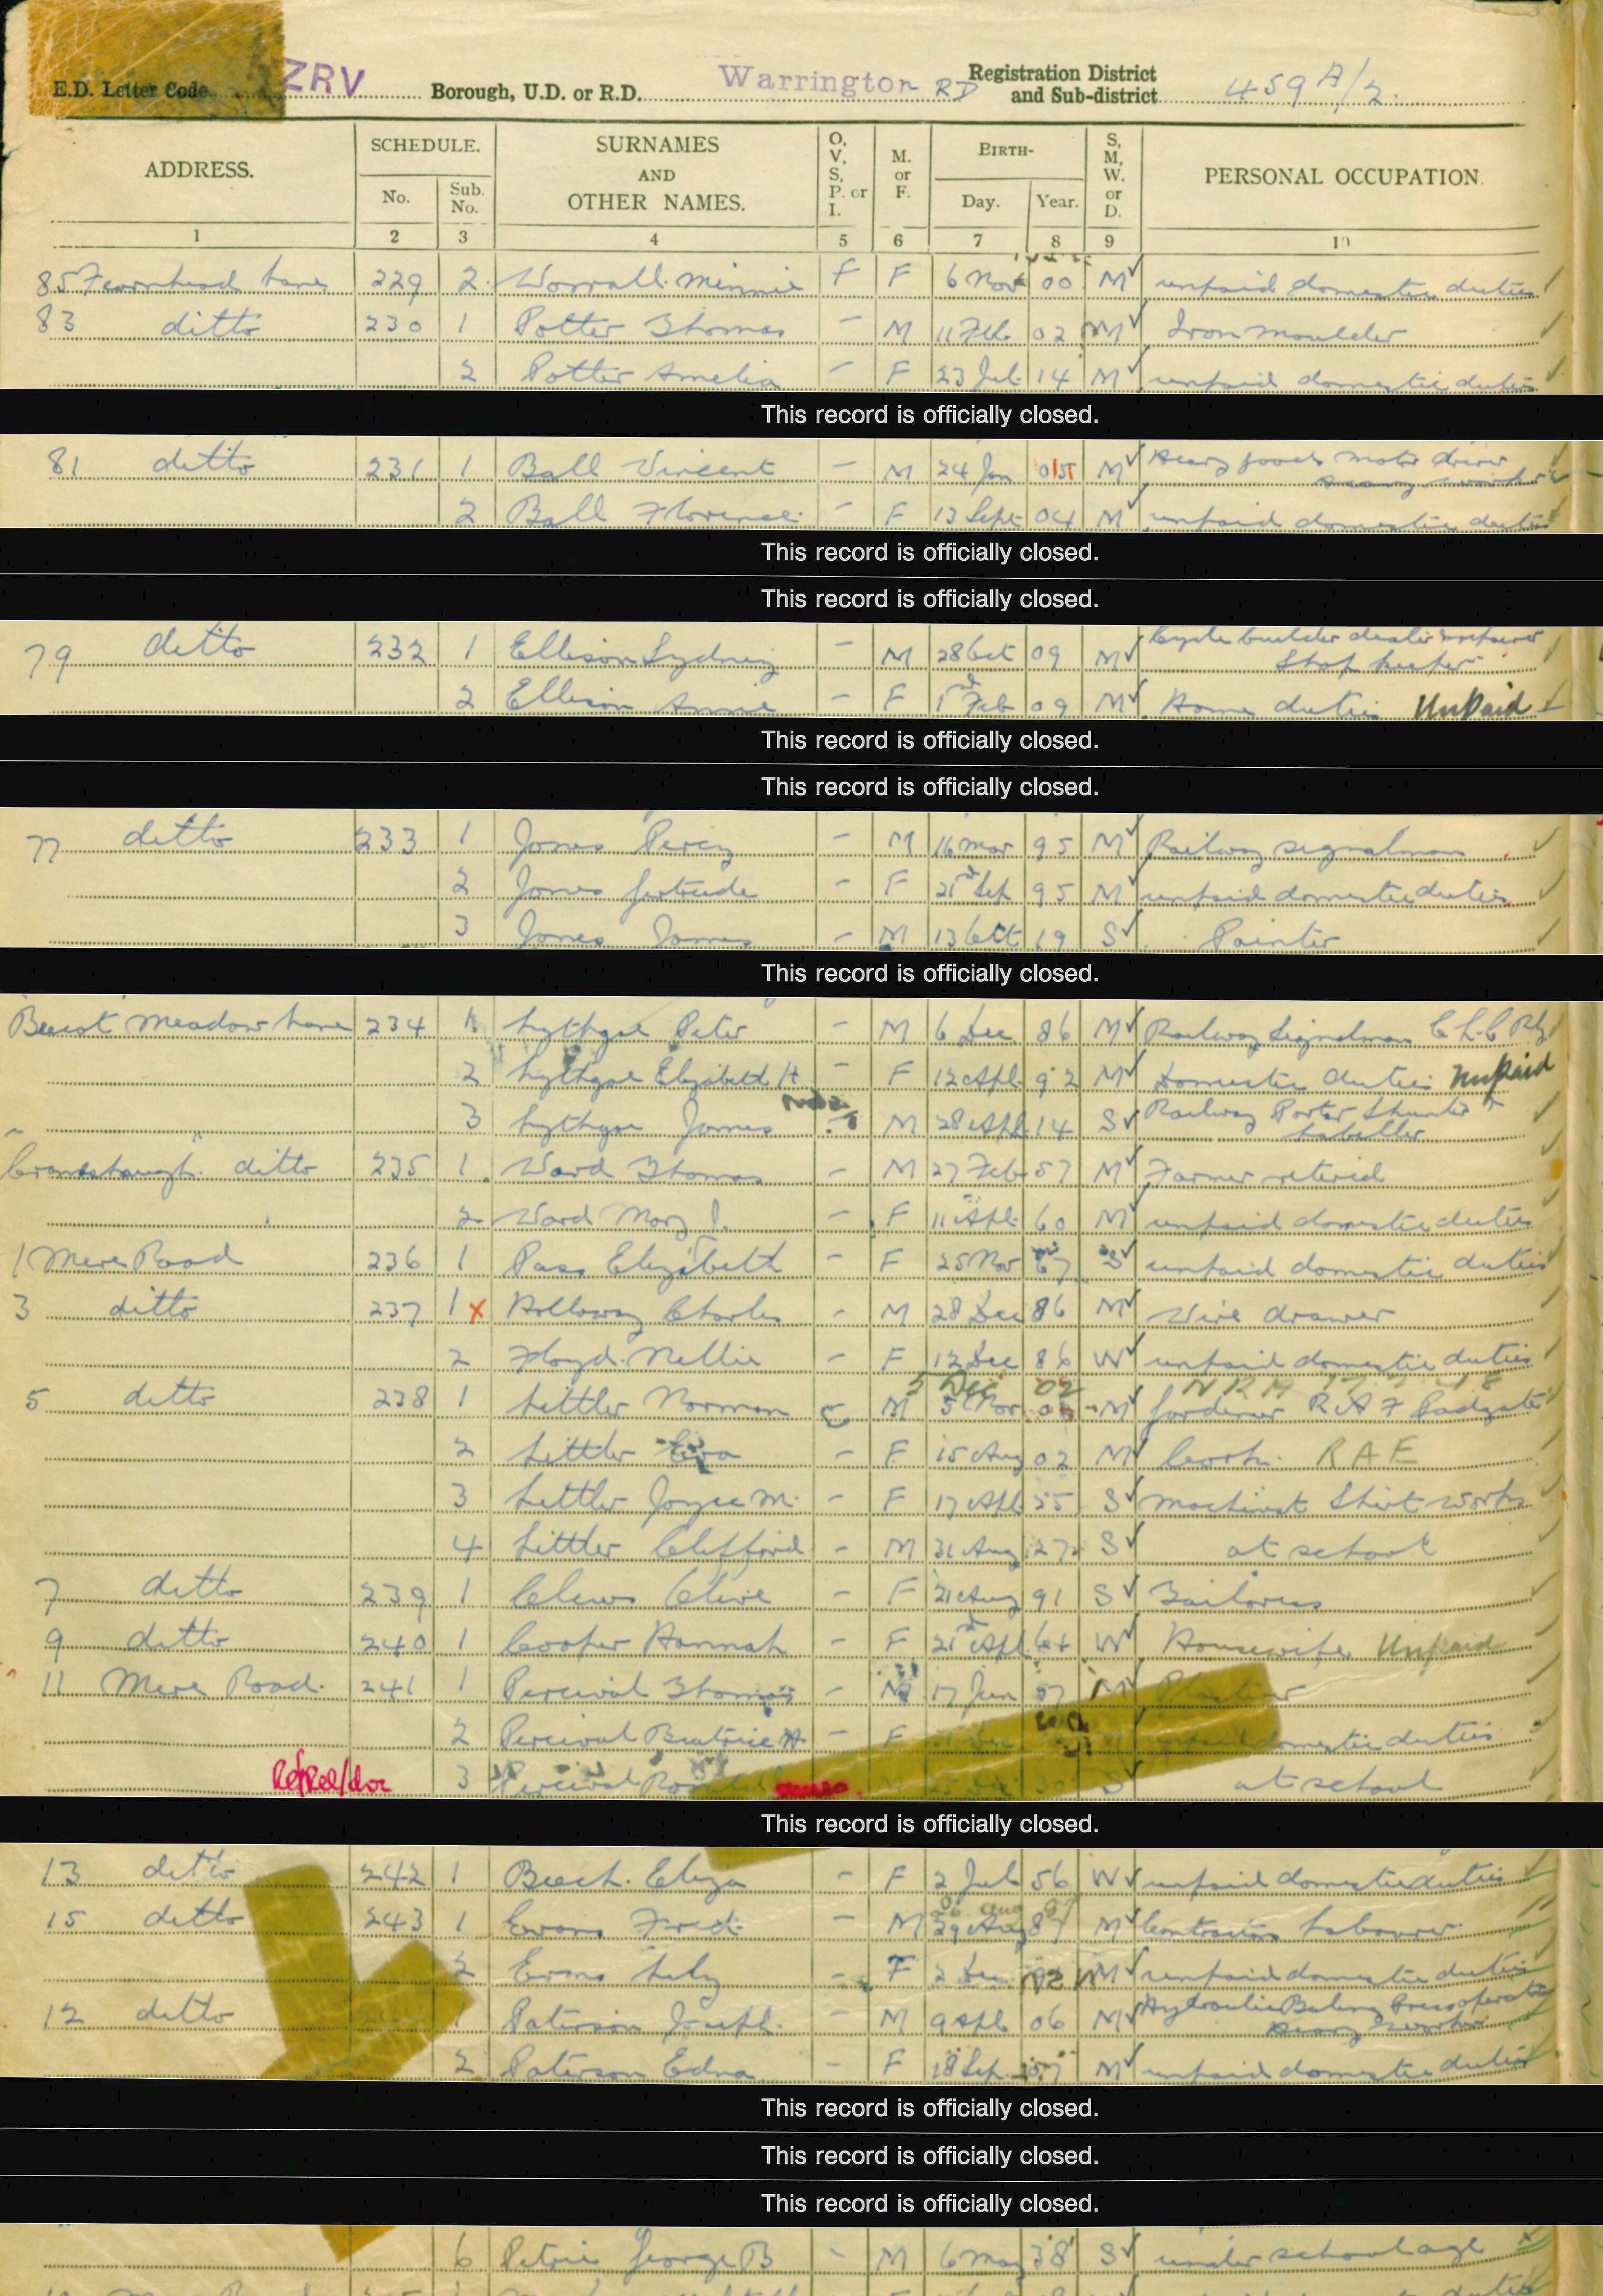 E.D. Letter Code ZRV Borough, U.D. or R.D. Warrington RD Registration District and Sub-district 459 A/2.
ADDRESS. SCHEDULE. No. Sub. No. SURNAMES AND OTHER NAMES. O, V, S, P. or I. M. or F. BIRTH- Day. Year. S, M, W. or D. PERSONAL OCCUPATION.
1 2 3 4 5 6 7 8 9 10
85 Fearnhead Lane 229 2 Worrall Minnie F 6 Nov 00 M unpaid domestic duties
83 ditto 230 1 Potter Thomas - M 11 Feb 02 M Iron moulder
2 Potter Amelia - F 23 Jul 14 M unpaid domestic duties
This record is officially closed.
81 ditto 231 1 Ball Vincent - M 24 Jan 05 M Heavy goods motor driver
heavy worker
2 Ball Florence - F 13 Sept 04 M unpaid domestic duties
This record is officially closed.
This record is officially closed.
79 ditto 232 1 Ellison Sydney - M 28 Oct 09 M Cycle builder dealer
Shop keeper
2 Ellison Annie - F 1st Feb 09 M Home duties Unpaid
This record is officially closed.
This record is officially closed.
77 ditto 233 1 Jones Percy - M 16 Mar 95 M Railway signalman
2 Jones Gertrude - F 21st Sep 95 M unpaid domestic duties
3 Jones James - M 13 Oct 19 S Painter
This record is officially closed.
Meadow Lane 234 1 Lythgoe Peter - M 6 Dec 86 M Railway Signalman C L C Rly
2 Lythgoe Elizabeth H - F 12 Apl 92 M Domestic duties Unpaid
3 Lythgoe James - M 28 Apl 14 S Railway Porter Shunter
Labeller
ditto 235 1 Ward Thomas - M 27 Feb 57 M Farmer retired
2 Ward Mary J. - F 11 Apl 60 M unpaid domestic duties
1 Mere Road 236 1 Pass Elizabeth - F 25 Nov 67 S unpaid domestic duties
3 ditto 237 1 x Holloway Charles - M 28 Dec 86 M Wire drawer
2 Floyd Nellie - F 12 Dec 86 W unpaid domestic duties
5 Dec 02 NRH
5 ditto 238 1 Littler Norman M 5 Nov M Gardener R A F Padgate
2 Littler Eva - F 15 Aug 02 M Cook RAF
3 Littler Joyce M. - F 17 Apl 25 S Machinist Shirt works
4 Littler Clifford - M 31 Aug 27 S at school
7 ditto 239 1 Clews Olive - F 21 Aug 91 S Tailoress
9 ditto 240 1 Cooper Hannah - F 21st Apl 64 W Housewife Unpaid
11 Mere Road 241 1 Percival Thomas - M 17 Jun 07 M Plasterer
2 Percival Beatrice A - F unpaid domestic duties
Ref Rel/doc 3 Percival Ronald M 30 S at school
This record is officially closed.
13 ditto 242 1 Beech Eliza - F 2 Jul 56 W unpaid domestic duties
15 ditto 243 1 Evans Fred - M 29 Aug 87 M Contractors Labourer
2 Evans Lily - F 2 Dec 92 M unpaid domestic duties
12 ditto 1 Paterson Joseph - M 9 Apl 06 M Hydraulic Baling Press operator
heavy worker
2 Paterson Edna - F 18 Sep 07 M unpaid domestic duties
This record is officially closed.
This record is officially closed.
This record is officially closed.
6 Petrie George B - M 6 May 38 S under school age